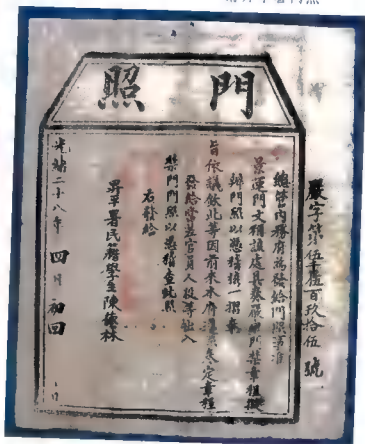 門照
嚴字第伍千伍百玖拾伍號
總管內務府為發給門照事准
景運門文稱該處具奏嚴肅門禁章程擬
辦門照以憑稽 摺奏
旨依議欽此等因前來本府遵照奏定章程
發給當差官員人役等出入
禁門門照以憑稽查此照
右發給
昇平署民籍學生陳德林
光緒二十八年四月初四日